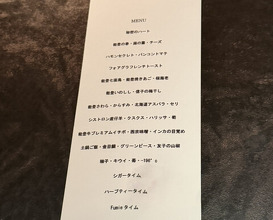 MENU
秘密のハート
能登の春・緑の畑・チーズ
ハモンセラレト・パンコントマテ
フォアグラフレンチトースト
能登七面鳥・能登焼きあご・
能登いのしし・
能登さわら・からすみ・北海道アスパラ・セリ
シストロン産仔羊・クスクス・ハリッサ・菊
能登牛プレミアムイチボ・西京味噌・インカの目覚め
土鍋ご飯・グリーンピース・
柚子・キウイ・苺・-196°c
シガータイム
ハーブティータイム
Fumieタイム